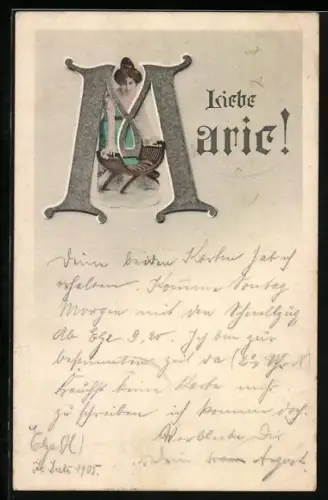 Liebe
Marie!
Deine beiden Karten hab ich
erhalten. Komme Sontag
Morgen mit den Schnellzug
Ab Elze 9,20. Ich bin zur
bestimmten Zeit da (2 Uhr N)
brauchst keine Karte mehr
zu schreiben ich komme doch.
Verbleibe Dir
Dein August.
Elze (H)
Juli 1905.